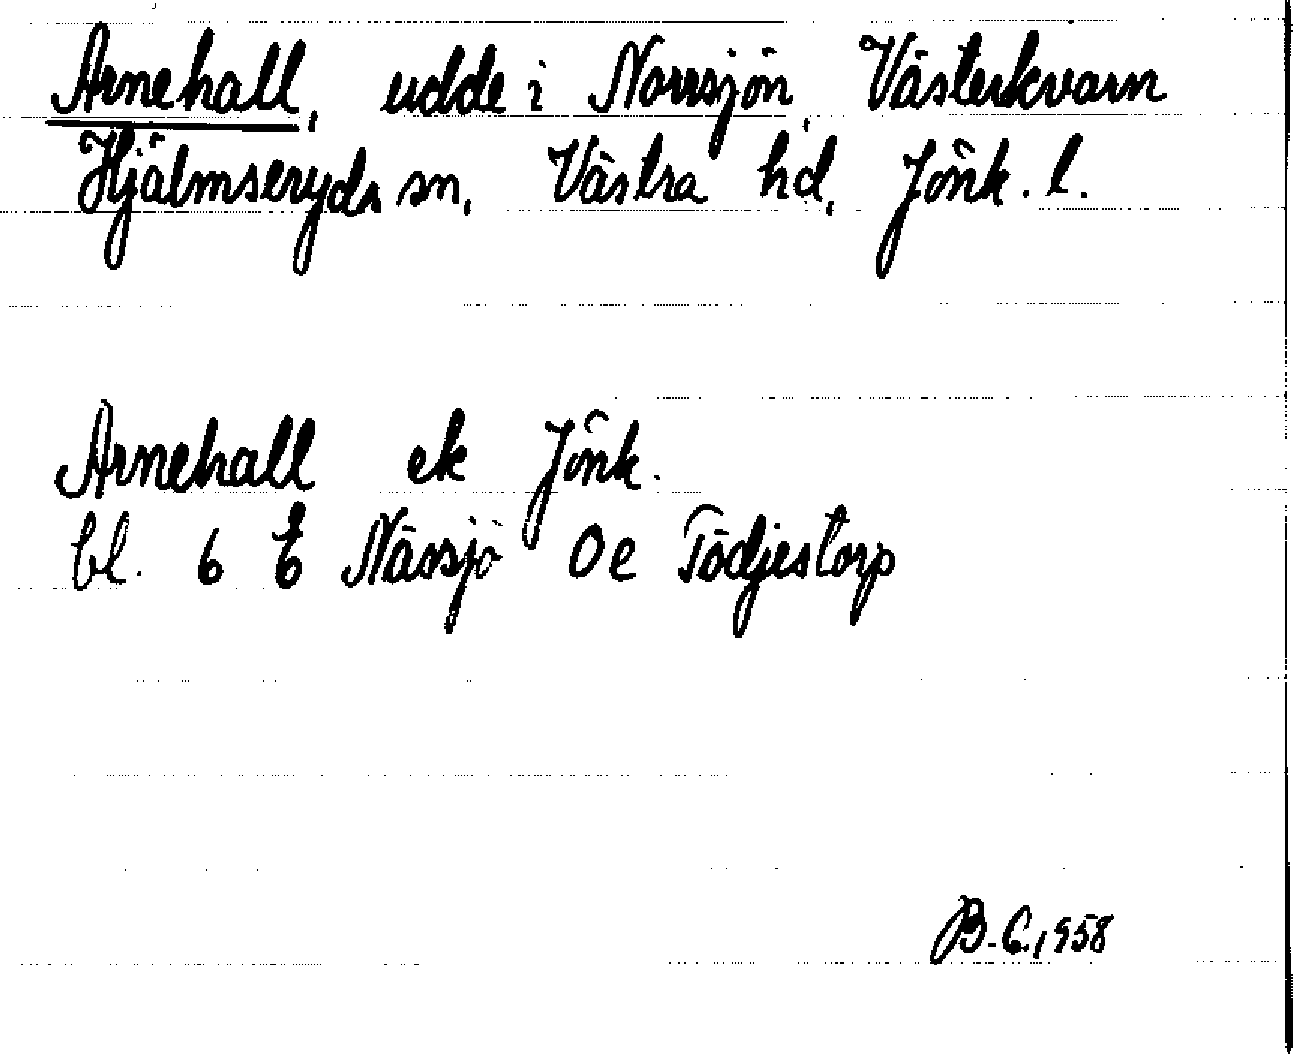 Arnehall, udde i Norrsjön, Västerkvarn
Hjälmseryds sn, Västra hd, Jönk. l.
Arnehall ek Jönk.
bl. 6 E Nässjö 0e Tödjestorp
B-G, 1958